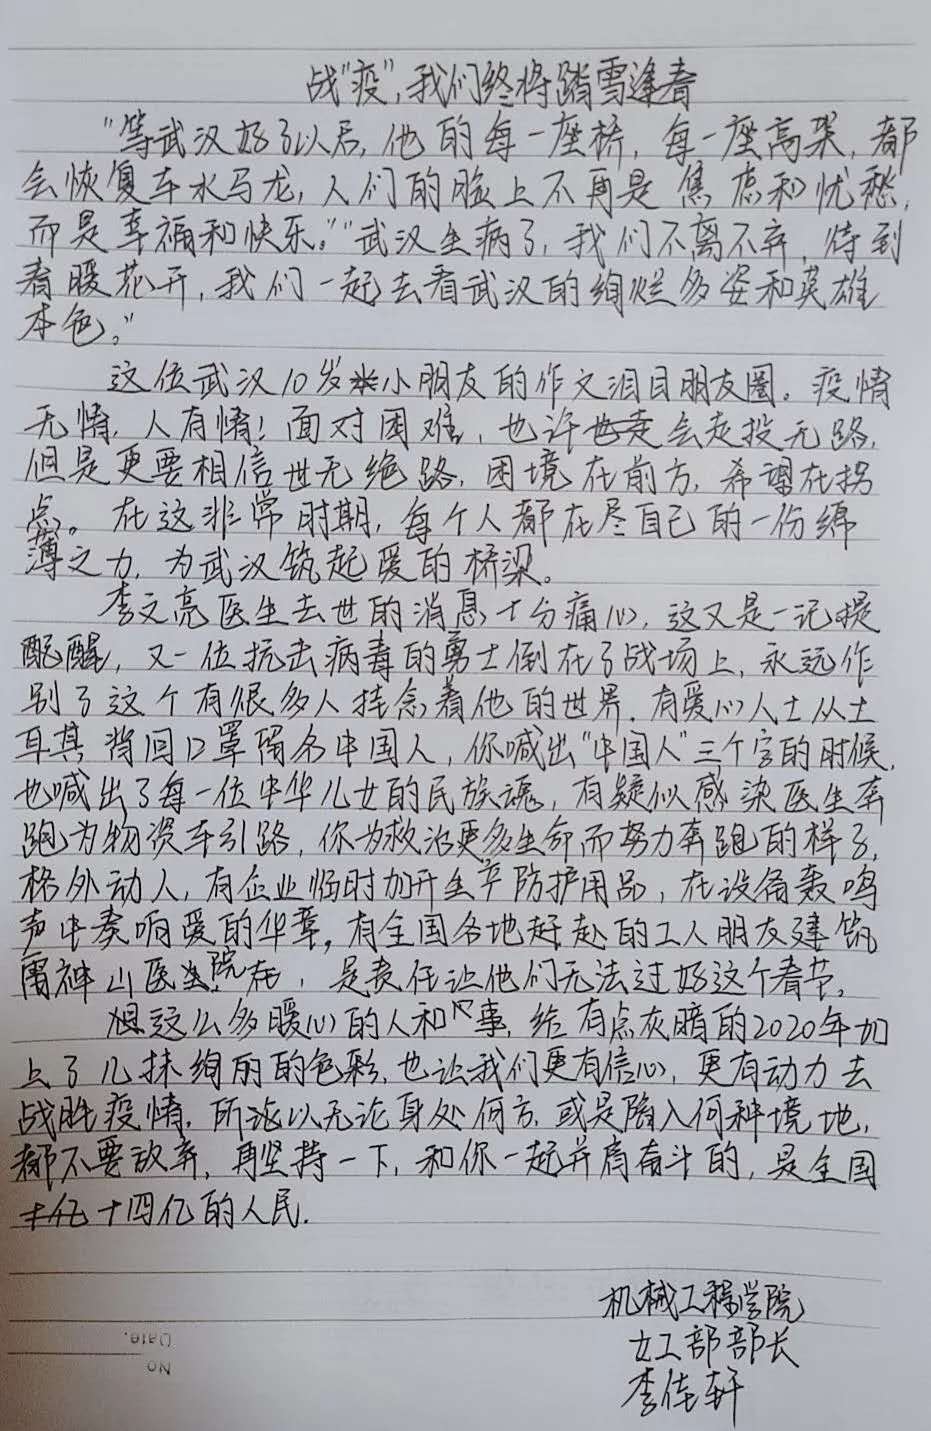 战“疫”,我们终将踏雪逢春
“等武汉好了以后,他的每一座桥,每一座高架,都
会恢复车水马龙,人们的脸上不再是焦虑和忧愁,
而是幸福和快乐。”“武汉生病了,我们不离不弃,待到
春暖花开,我们一起去看武汉的绚烂多姿和英雄
本色。”
这位武汉10岁小朋友的作文泪目朋友圈。疫情
无情,人有情!面对困难,也许会走投无路,
但是更要相信世无绝路,困境在前方,希望在拐
点。在这非常时期,每个人都在尽自己的一份绵
薄之力,为武汉筑起爱的桥梁。
李文亮医生去世的消息十分痛心,这又是一记提
醒,又一位抗击病毒的勇士倒在了战场上,永远作
别了这个有很多人挂念着他的世界.有爱心人士从土
耳其背回口罩隔名中国人,你喊出“中国人”三个字的时候,
也喊出了每一位中华儿女的民族魂,有疑似感染医生奔
跑为物资车引路,你为救治更多生命而努力奔跑的样子,
格外动人,有企业临时加开生产防护用品,在设备轰鸣
声中奏响爱的华章,有全国各地赶赴的工人朋友建筑
雷神山医院,是责任让他们无法过好这个春节。
这么多暖心的人和事,给有点灰暗的2020年加
上了几抹绚丽的色彩,也让我们更有信心,更有动力去
战胜疫情,所以无论身处何方,或是陷入何种境地,
都不要放弃,再坚持一下,和你一起并肩奋斗的,是全国
十四亿的人民.
机械工程学院
女工部部长
李佳轩
Date.
No